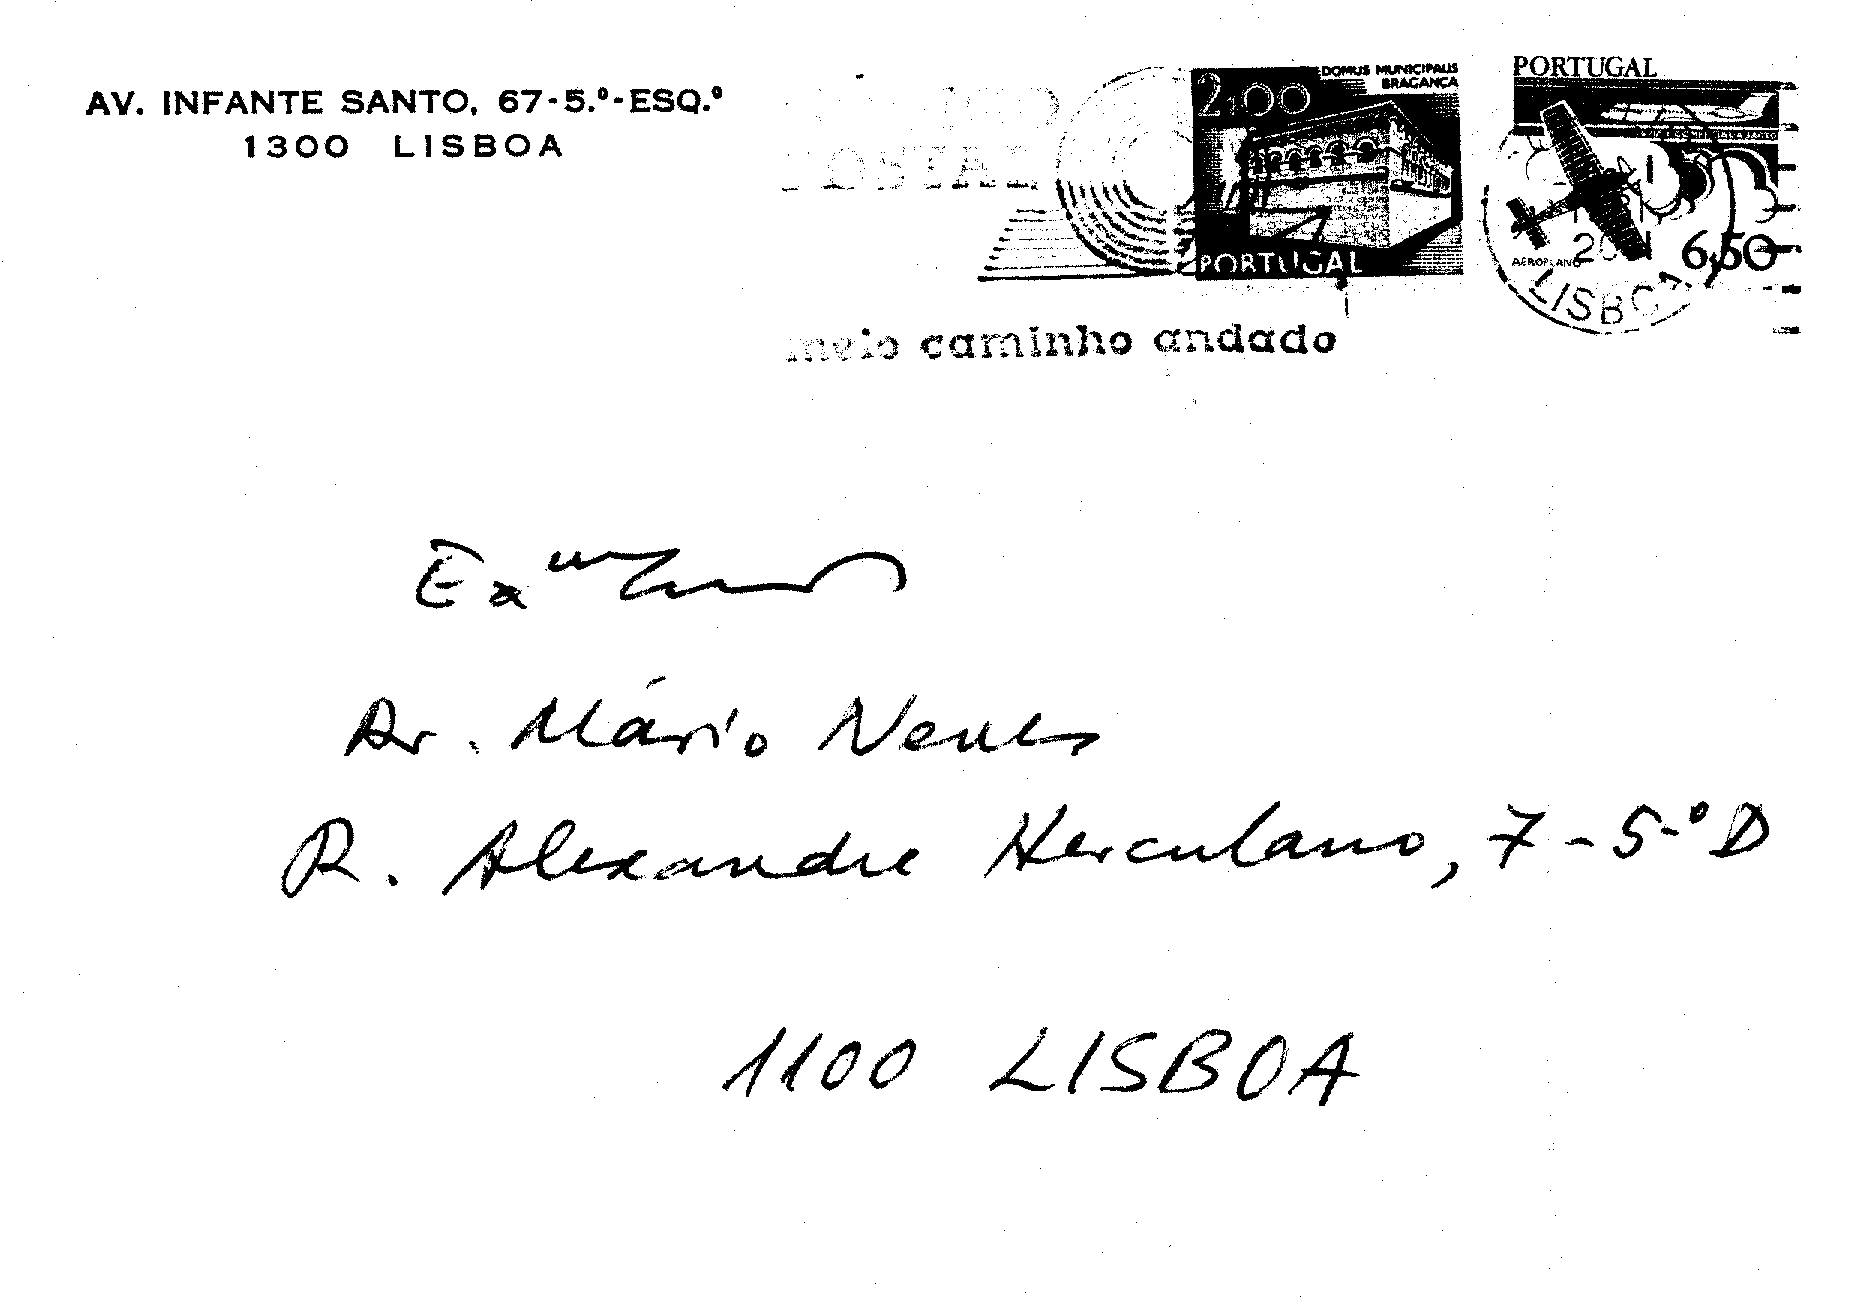 AV. INFANTE SANTO, 67-5.º-ESQ.º
1300 LISBOA
POSTAL
meio caminho andado
2$00
DOMUS MUNICIPALIS
BRAGANÇA
PORTUGAL
PORTUGAL
AEROPLANO
6,50
LISBOA
Exmo Senhor
Dr. Mário Neves
R. Alexandre Herculano, 7-5.º D
1100 LISBOA